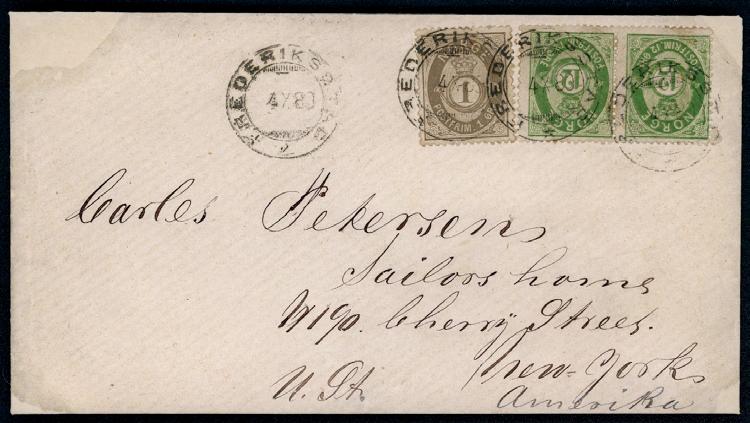 FREDERIKSSTAD
4 X 80
2
NORGE
1
POSTFRIM. 1 ØRE
NORGE
12
POSTFRIM. 12 ØRE
NORGE
12
POSTFRIM. 12 ØRE
Carles Petersens
Sailors home
N 190. Cherry Street.
new-York
U. St.
Amerika